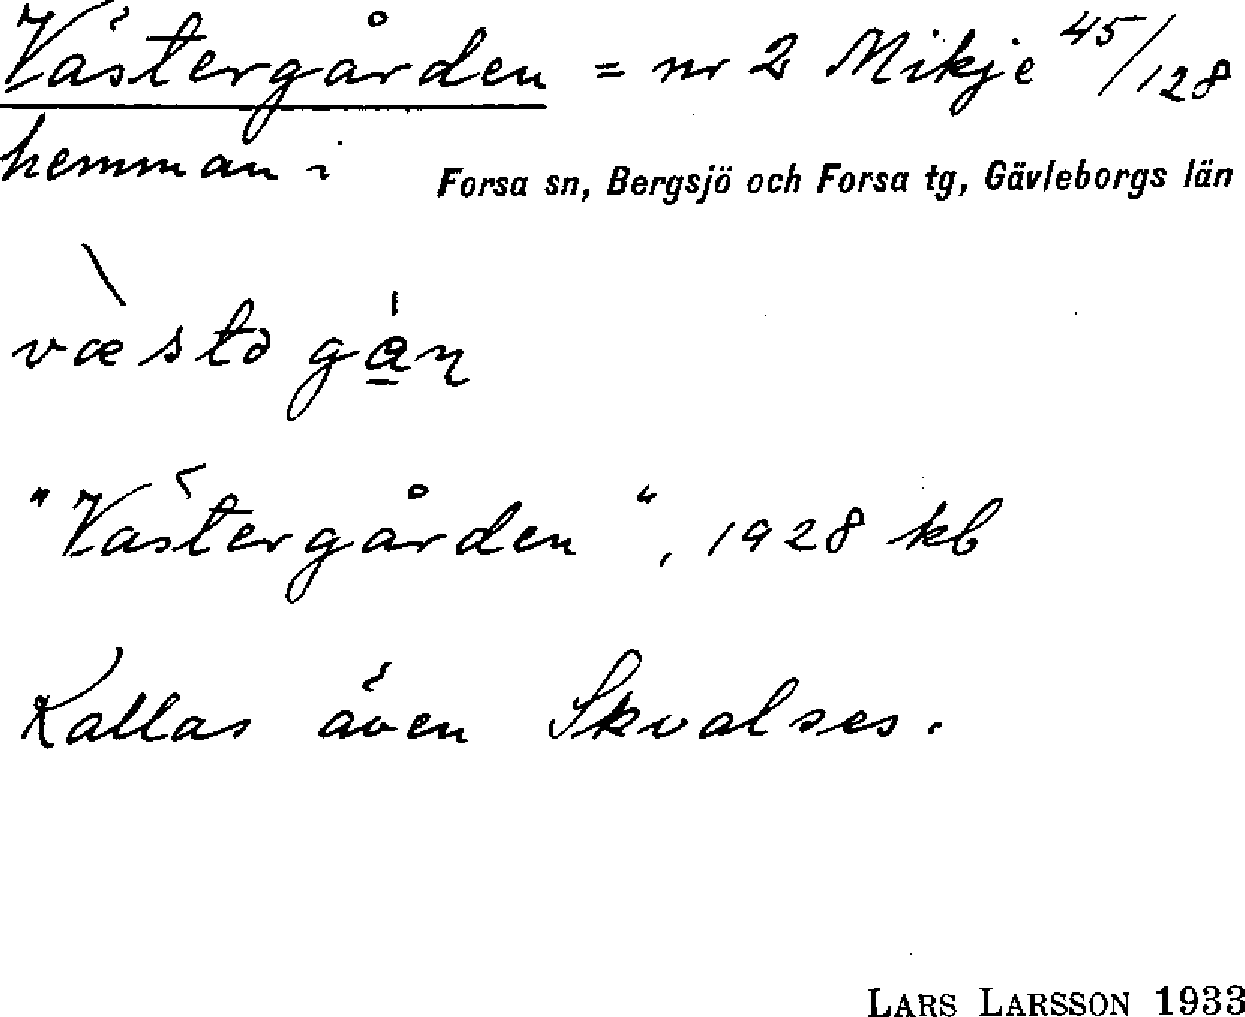 Västergården = nr 2 Mickje 45/128
hemman i Forsa sn, Bergsjö och Forsa tg, Gävleborgs län
"Västergården", 1928 kb
Kallas även Skvalses.
LARS LARSSON 1933